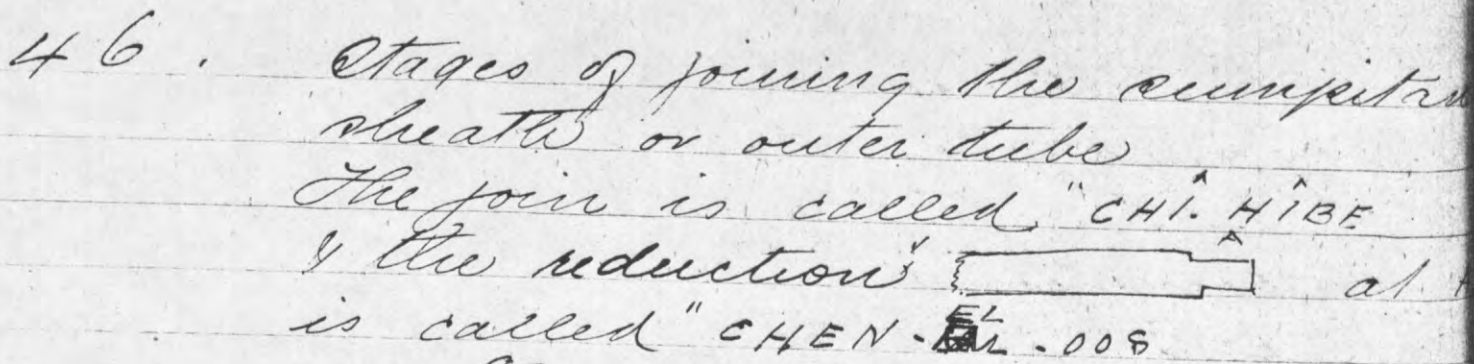 46. Stages of joining the sumpitan
sheath or outer tube
The join is called "CHÎ. HÎBE
& the reduction" at
is called "CHEN-EL-OOS